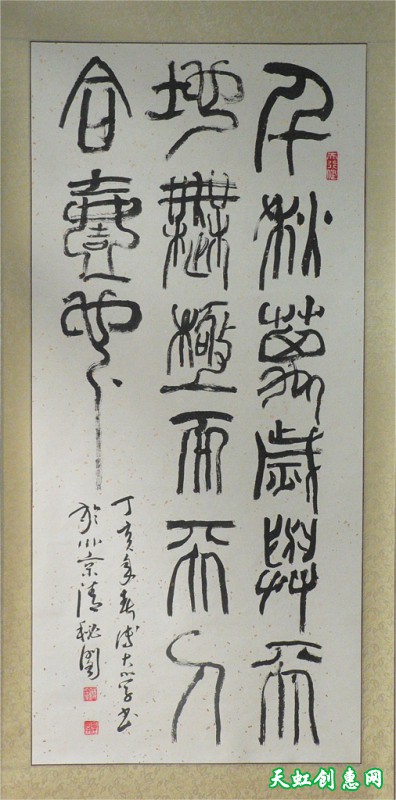 千秋萬歲與天
地無極而天人
合壹也
丁亥年春傅大學書
於北京清秘閣
天虹创惠网